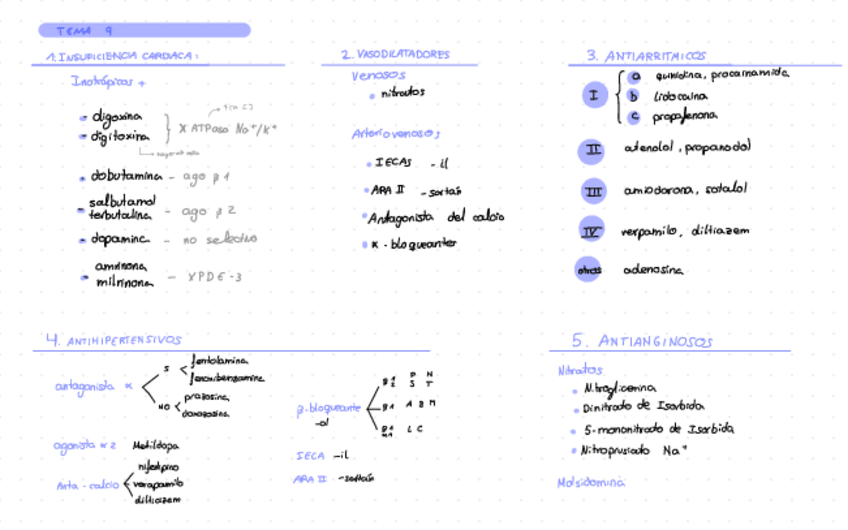 TEMA 9
1. INSUFICIENCIA CARDIACA:
Inotrópicos +
digoxina
digitoxina
X ATPasa Na+/K+
dobutamina - ago β1
salbutamol
terbutalina - ago β2
dopamina - no selectivo
amrinona
milrinona - XPDE-3
2. VASODILATADORES
Venosos
nitratos
Arteriovenosos
IECAS - il
ARA II - sartán
Antagonista del calcio
α - bloqueantes
3. ANTIARRITMICOS
I
a quinidina, procainamida
b lidocaina
c propafenona
II atenolol, propanodol
III amiodarona, sotalol
IV verpamilo, diltiazem
otros adenosina
4. ANTIHIPERTENSIVOS
antagonista α
S
fentolamina
fenoxibenzamina
NO
prazosina
doxazosina
agonista α2 Metildopa
Anta-calcio
nifedipino
verapamilo
diltiazem
β-bloqueante
-ol
β1 P N
β2 S T
β1 A B M
β1 L C
IECA -il
ARA II -sartán
5. ANTIANGINOSOS
Nitratos
Nitroglicerina
Dinitrado de Isorbida
5-mononitrado de Isorbida
Nitroprusiado Na+
Molsidomina